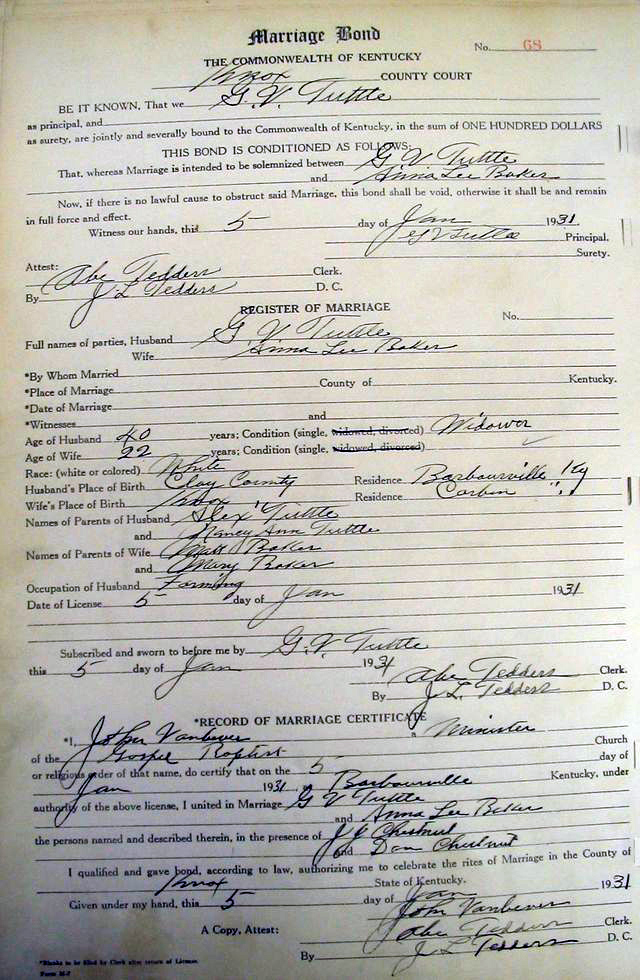 Marriage Bond
No. 68
THE COMMONWEALTH OF KENTUCKY
Knox COUNTY COURT
BE IT KNOWN, That we G. V. Tuttle
as principal, and
as surety, are jointly and severally bound to the Commonwealth of Kentucky, in the sum of ONE HUNDRED DOLLARS
THIS BOND IS CONDITIONED AS FOLLOWS:
That, whereas Marriage is intended to be solemnized between G. V. Tuttle
and Anna Lee Baker
Now, if there is no lawful cause to obstruct said Marriage, this bond shall be void, otherwise it shall be and remain
in full force and effect.
Witness our hands, this 5 day of Jan 1931
G V Tuttle Principal.
Surety.
Attest:
Abe Tedders Clerk.
By J L Tedders D. C.
REGISTER OF MARRIAGE
No.
Full names of parties, Husband G. V. Tuttle
Wife Anna Lee Baker
*By Whom Married
*Place of Marriage County of Kentucky.
*Date of Marriage
*Witnesses and
Age of Husband 40 years; Condition (single, widowed, divorced) Widower
Age of Wife 22 years; Condition (single, widowed, divorced)
Race: (white or colored) White
Husband's Place of Birth Clay County Residence Barbourville Ky
Wife's Place of Birth Knox Residence Corbin " "
Names of Parents of Husband Alex Tuttle
and Nancy Ann Tuttle
Names of Parents of Wife Baker
and Mary Baker
Occupation of Husband Farming
Date of License 5 day of Jan 1931
Subscribed and sworn to before me by G. V. Tuttle
this 5 day of Jan 1931
Abe Tedders Clerk.
By J. L. Tedders D. C.
*RECORD OF MARRIAGE CERTIFICATE
*I, John Vanbever a Minister
of the Gospel Baptist Church
or religious order of that name, do certify that on the 5 day of
Jan 1931 Barbourville Kentucky, under
authority of the above license, I united in Marriage G V Tuttle
and Anna Lee Baker
the persons named and described therein, in the presence of J J Chesnut
and Dan Chesnut
I qualified and gave bond, according to law, authorizing me to celebrate the rites of Marriage in the County of
Knox State of Kentucky.
Given under my hand, this 5 day of Jan 1931
John Vanbever
A Copy, Attest: Abe Tedders Clerk.
By J L Tedders D. C.
*Blanks to be filled by Clerk after return of License.
Form M-2